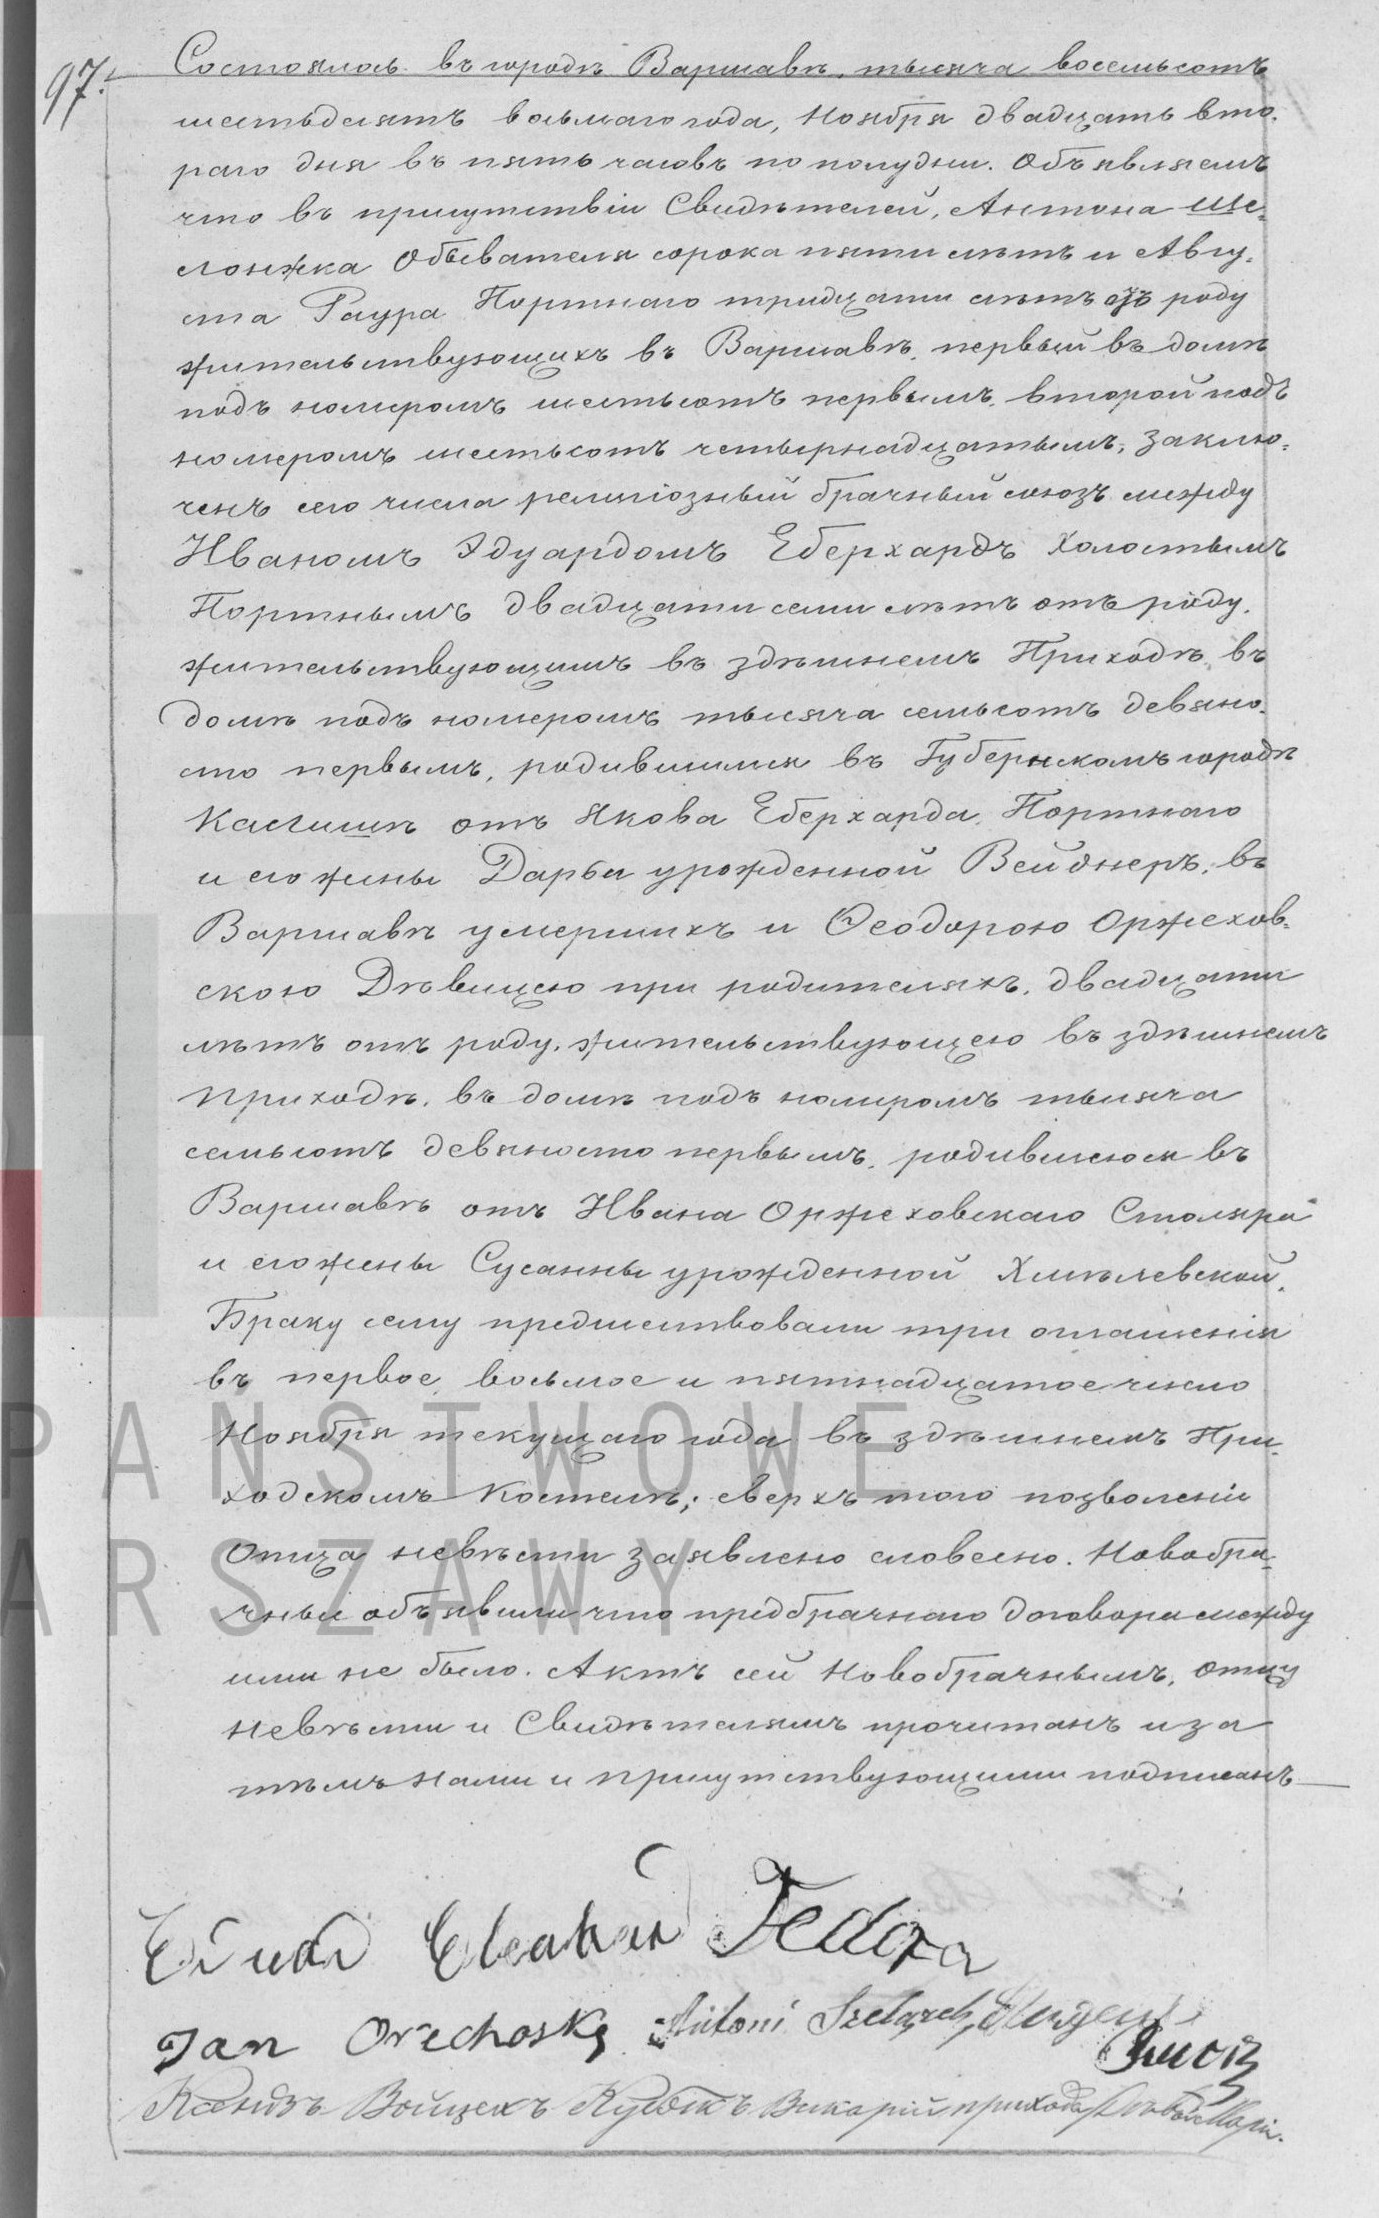 97.
Состоялось въ городѣ Варшавѣ, тысяча восемьсотъ
шестьдесятъ восьмаго года, Ноября двадцать вто-
раго дня въ пять часовъ по полудни. Объявляемъ
что въ присутствіи Свидѣтелей, Антона Ше-
лонжка Обывателя сорока пяти лѣтъ и Авгу-
ста Раура Портнаго тридцати лѣтъ отъ роду
жительствующихъ въ Варшавѣ, первый въ домѣ
подъ номеромъ шестьсотъ первымъ, второй подъ
номеромъ шестьсотъ четырнадцатымъ, заклю-
ченъ сего числа религіозный брачный союзъ между
Иваномъ Эдуардомъ Еберхардъ Холостымъ
Портнымъ двадцати семи лѣтъ отъ роду,
жительствующимъ въ здѣшнемъ Приходѣ, въ
домѣ подъ номеромъ тысяча семьсотъ девяно-
сто первымъ, родившимся въ Губернскомъ городѣ
Калишѣ отъ Якова Еберхарда, Портнаго
и его жены Дарьи урожденной Вейднеръ, въ
Варшавѣ умершихъ и Ѳеодорою Оржехов-
скою Дѣвицею при родителяхъ, двадцати
лѣтъ отъ роду, жительствующею въ здѣшнемъ
приходѣ, въ домѣ подъ номеромъ тысяча
семьсотъ девяносто первымъ, родившеюся въ
Варшавѣ отъ Ивана Оржеховскаго Столяра
и его жены Сусанны урожденной Хмѣлевской.
Браку сему предшествовали три оглашенія
въ первое, восьмое и пятнадцатое число
Ноября текущаго года въ здѣшнемъ При-
ходскомъ Костелѣ; сверхъ того позволеніе
Отца невѣсты заявлено словесно. Новобра-
чные объявили что предбрачнаго договора между
ими не было. Актъ сей Новобрачнымъ, Отцу
Невѣсты и Свидѣтелямъ прочитанъ и за
тѣмъ Нами и присутствующими подписанъ
Fedora
Jan Orzchoski Antoni
Ксендзъ Войцехъ Викарій прихода Дѣвы Маріи.
PAŃSTWOWE
ARSZAWY